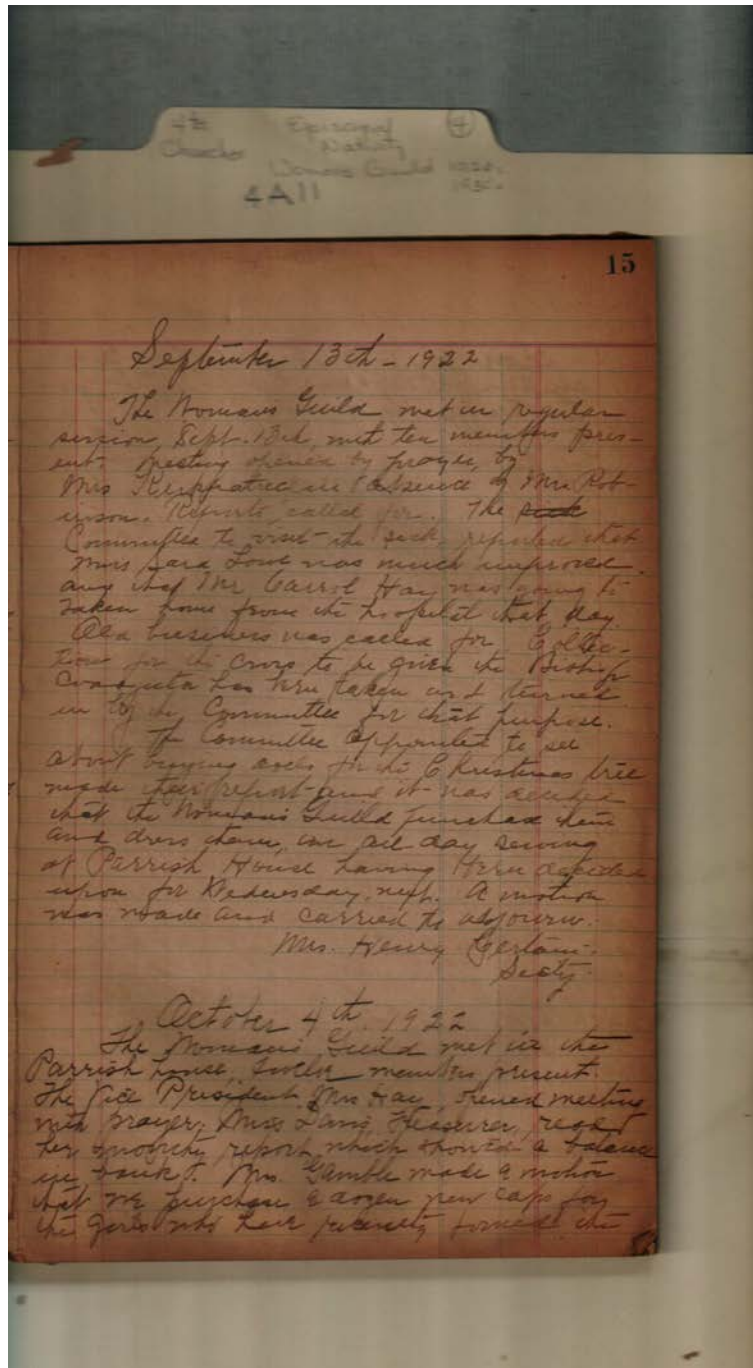 4th Episcopal 4
Church Nativity
Womans Guild 1920-
4A11 1930-
15
September 13th - 1922
The Womans Guild met in regular
session, Sept. 13th, with ten members pres-
ent. Meeting opened by prayer, by
Mrs in absence of Mrs Rob-
inson. Reports called for. The sick
Committee to visit the sick, reported that
Miss Sara Lowe was much improved
and that Mr Carrol Hay was going to
taken home from the hospital that day.
Old business was called for Collec-
tion for the Cross to be given the Bishop
Coadjutor has been taken and turned
in by the Committee for that purpose.
The Committee appointed to see
about buying dolls for the Christmas tree
made their report and it was decided
that the Woman's Guild purchase them
and dress them, an all day sewing
at Parrish House having been decided
upon for Wednesday next. A motion
was made and carried to adjourn.
Mrs. Henry
Secty.
October 4th. 1922
The Woman's Guild met in the
Parrish house, twelve members present.
The Vice President Mrs Hay, opened meeting
with prayer, Miss Treasurer, read
her monthly report, which showed a balance
in bank. Mrs. Gamble made a motion
that we purchase a dozen new caps for
the girls who have recently joined the